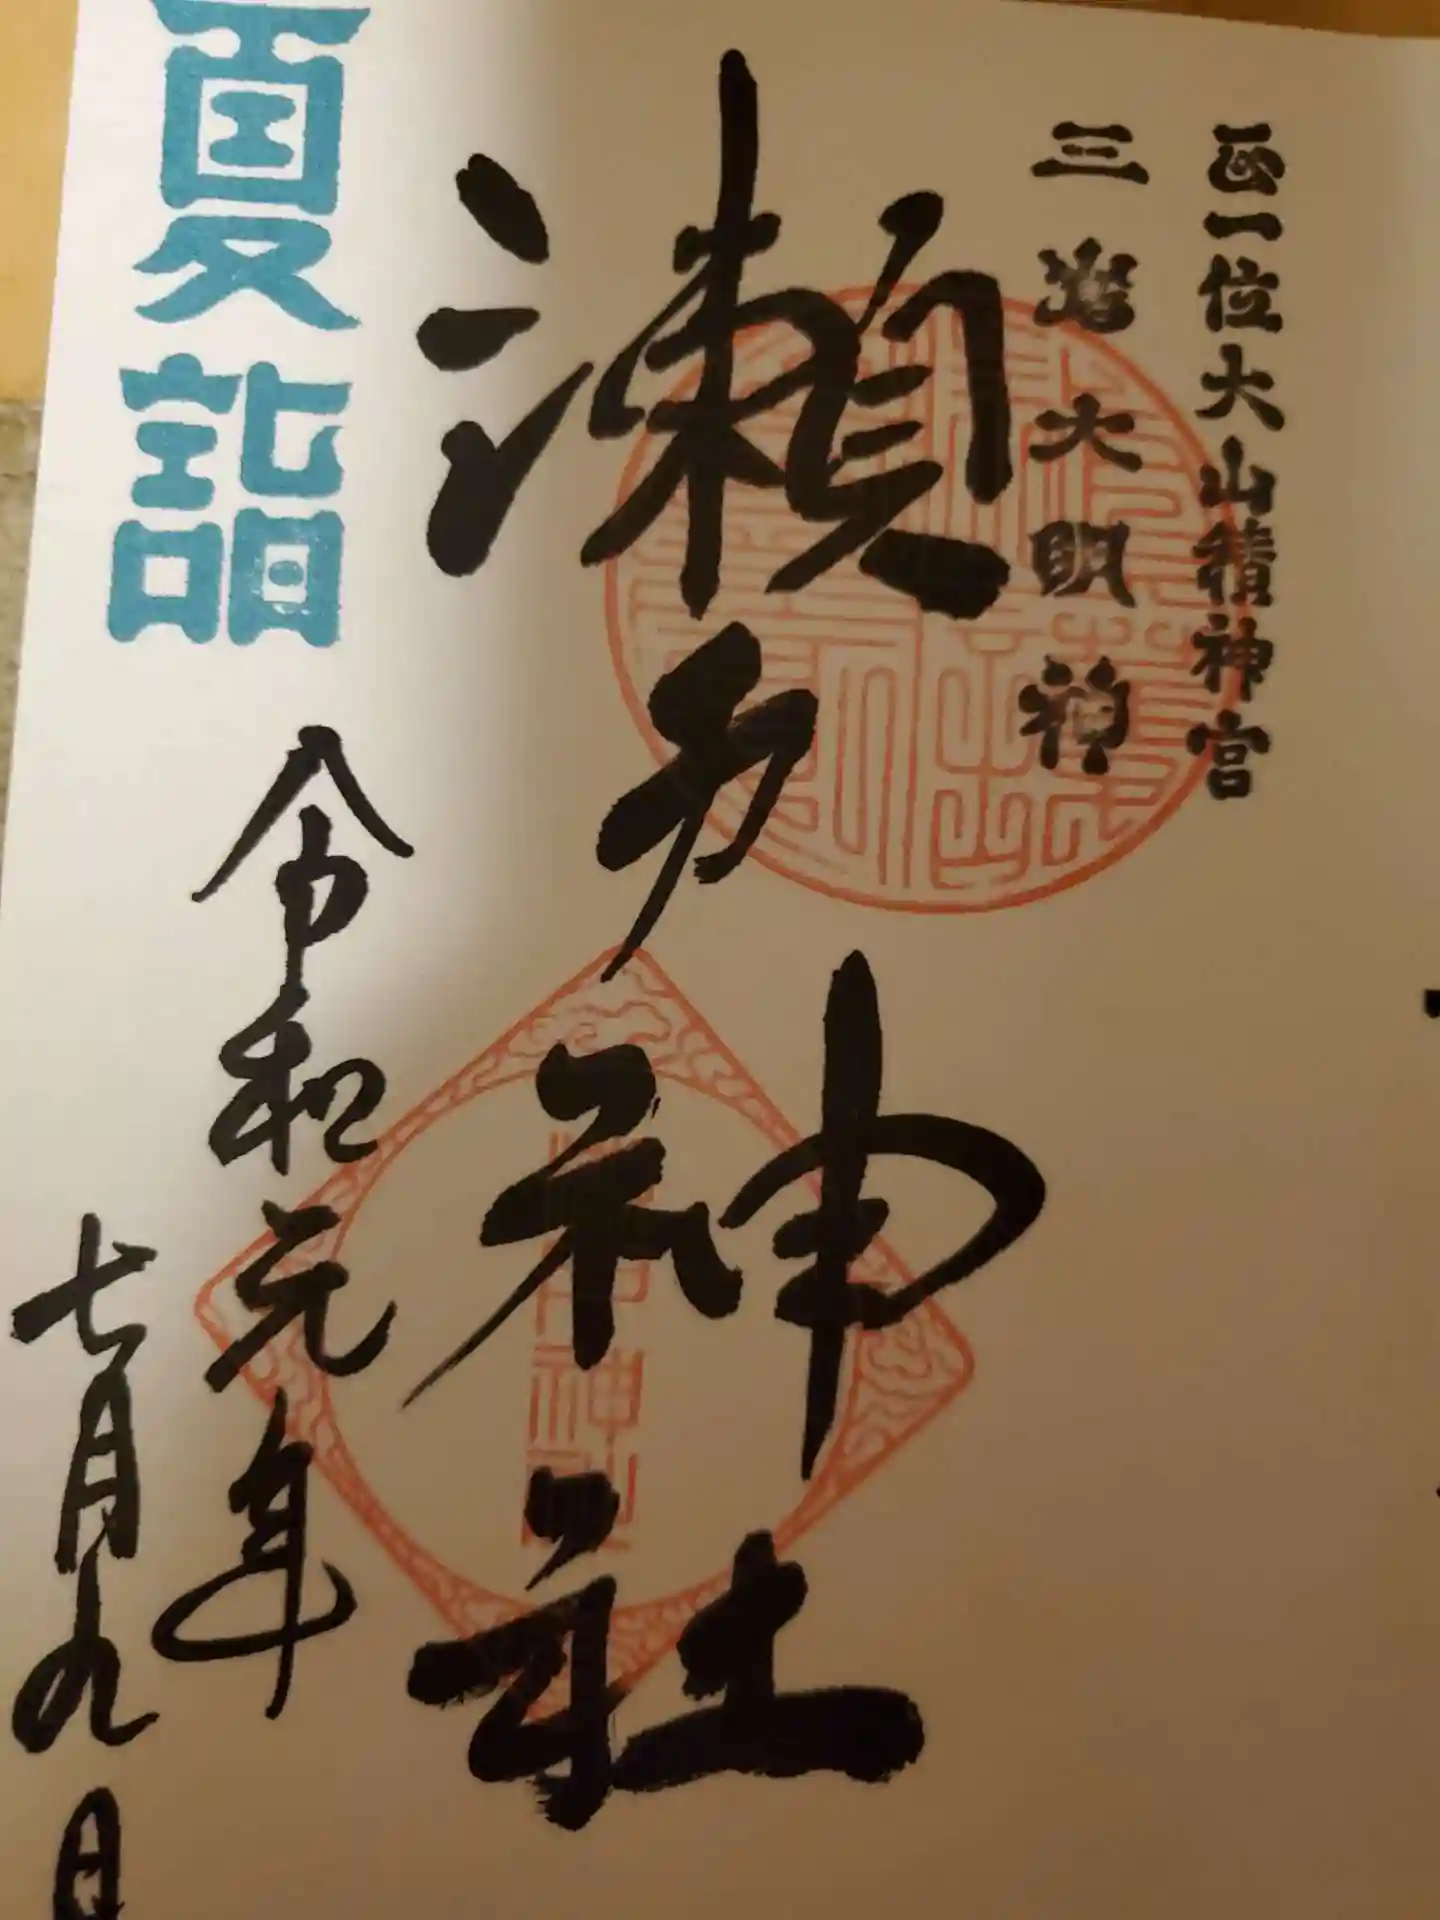 正一位大山積神宮
三嶌大明神
瀬戸神社
夏詣
令和元年
七月九日